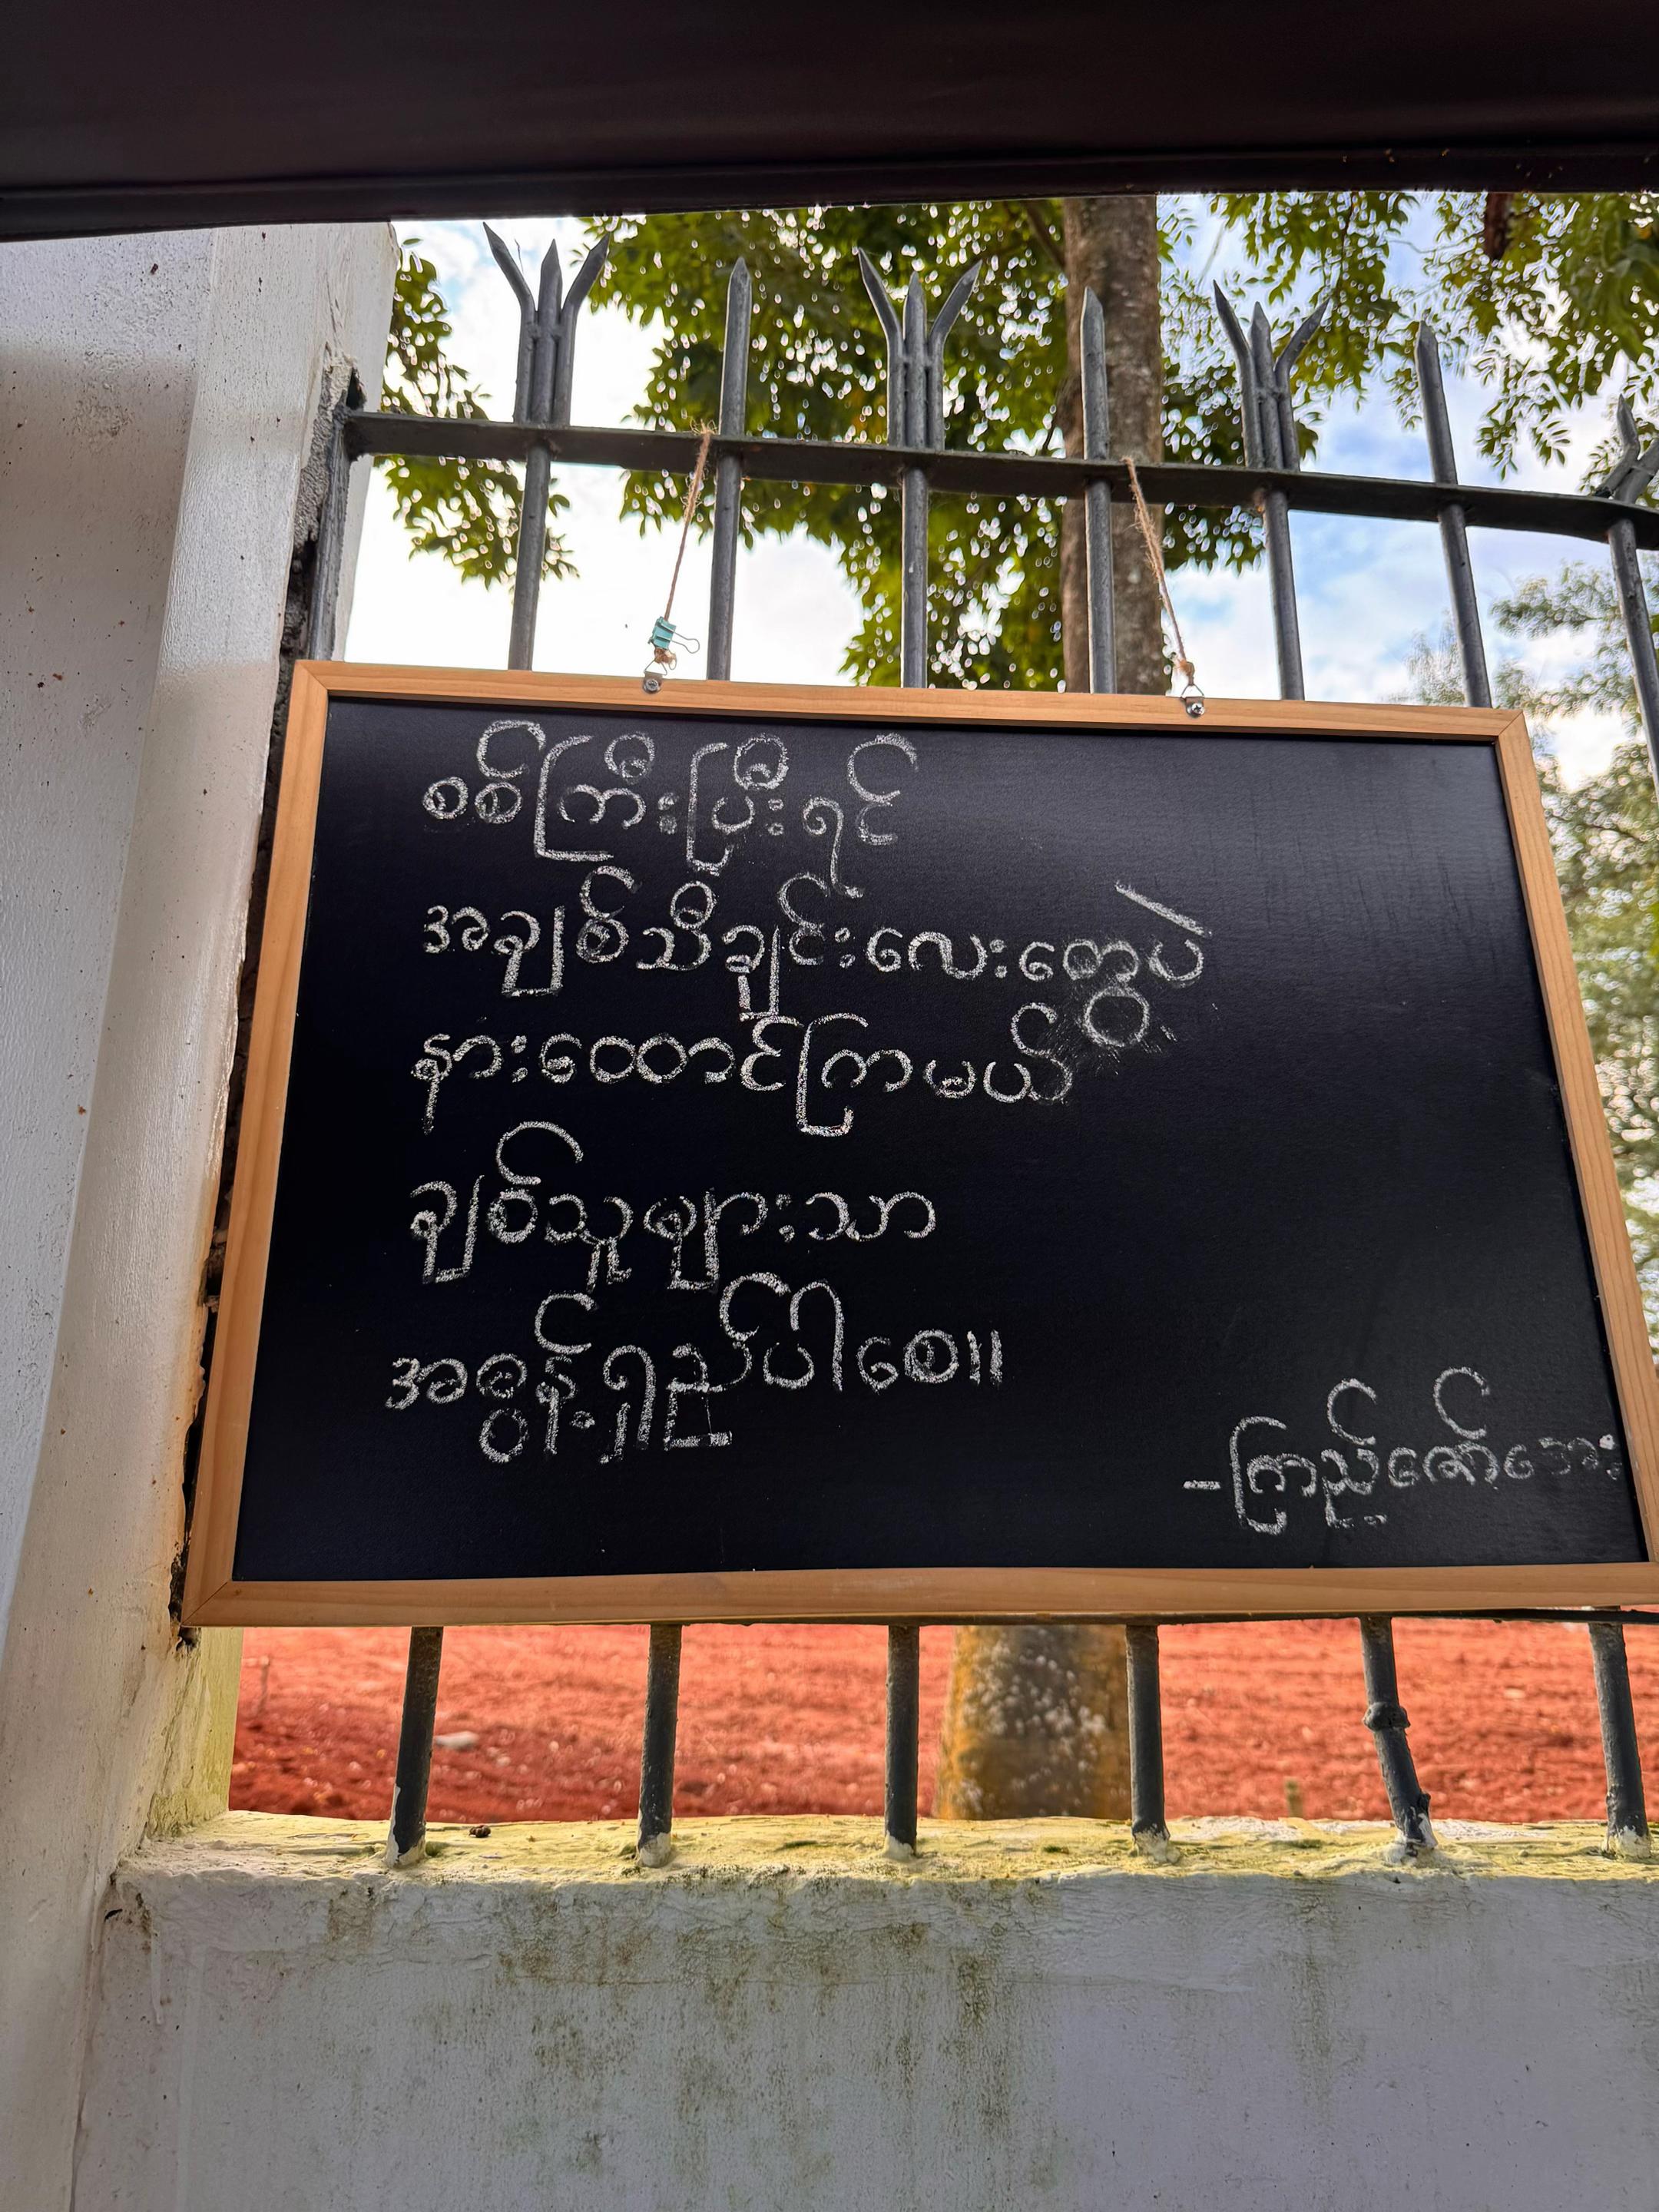 စစ်ကြီးပြီးရင်
အချစ်သီချင်းလေးတွေပဲ
နားထောင်ကြမယ်
ချစ်သူများသာ
အဓွန့်ရှည်ပါစေ။
-ကြည့်ဇော်အေး